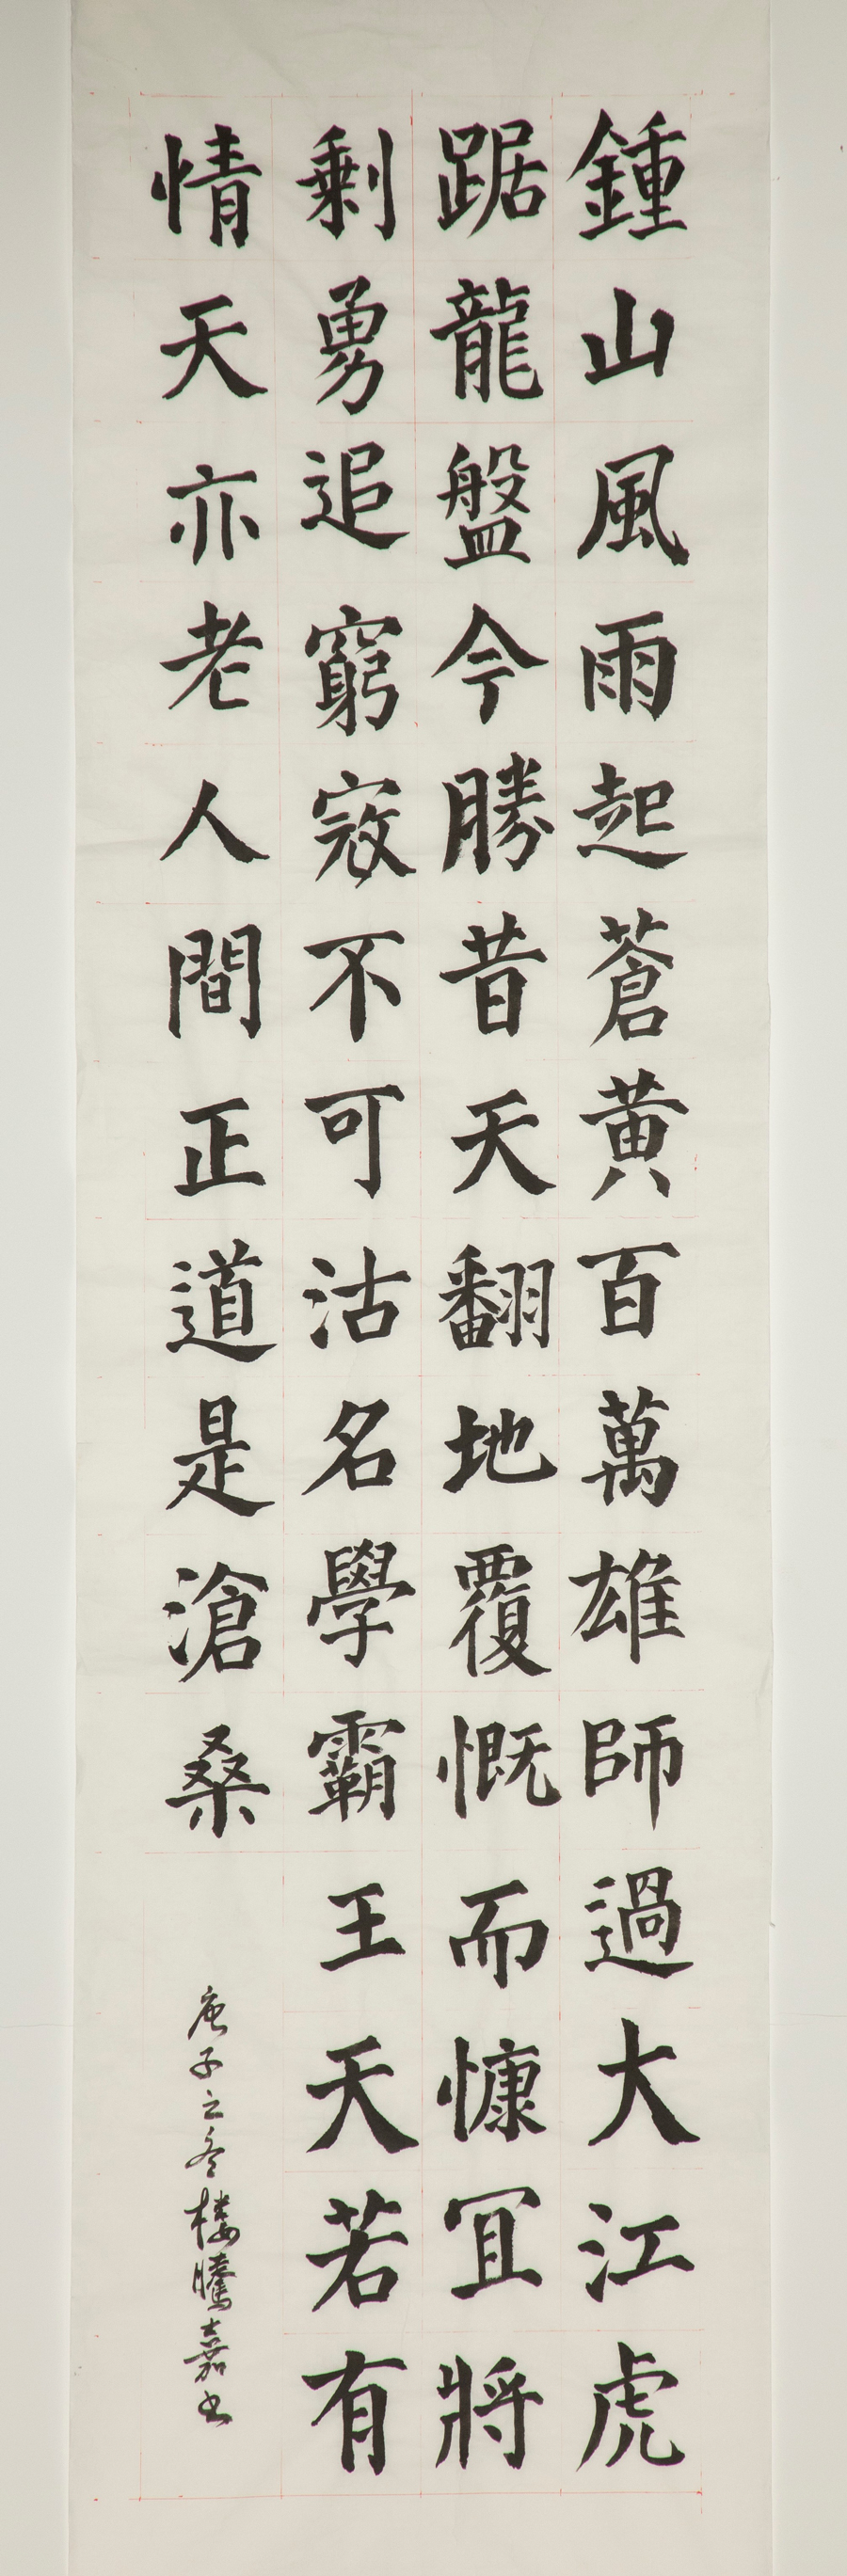 鍾山風雨起蒼黃百萬雄師過大江虎
踞龍盤今勝昔天翻地覆慨而慷宜將
剩勇追窮寇不可沽名學霸王天若有
情天亦老人間正道是滄桑
庚子之冬樓騰嘉书